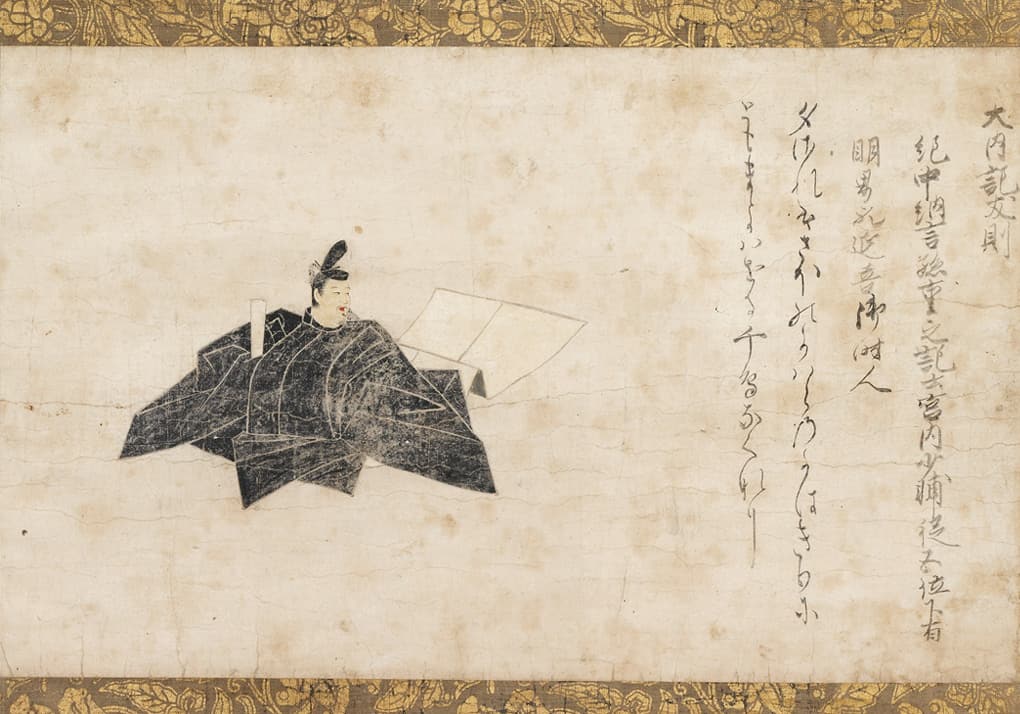 大内記友則
紀中納言孫重之記云宮内少輔従五位下有
朋男 延喜御時人
夕されはさほのかハらのかはきりに
ともまとハせる千鳥なくなり